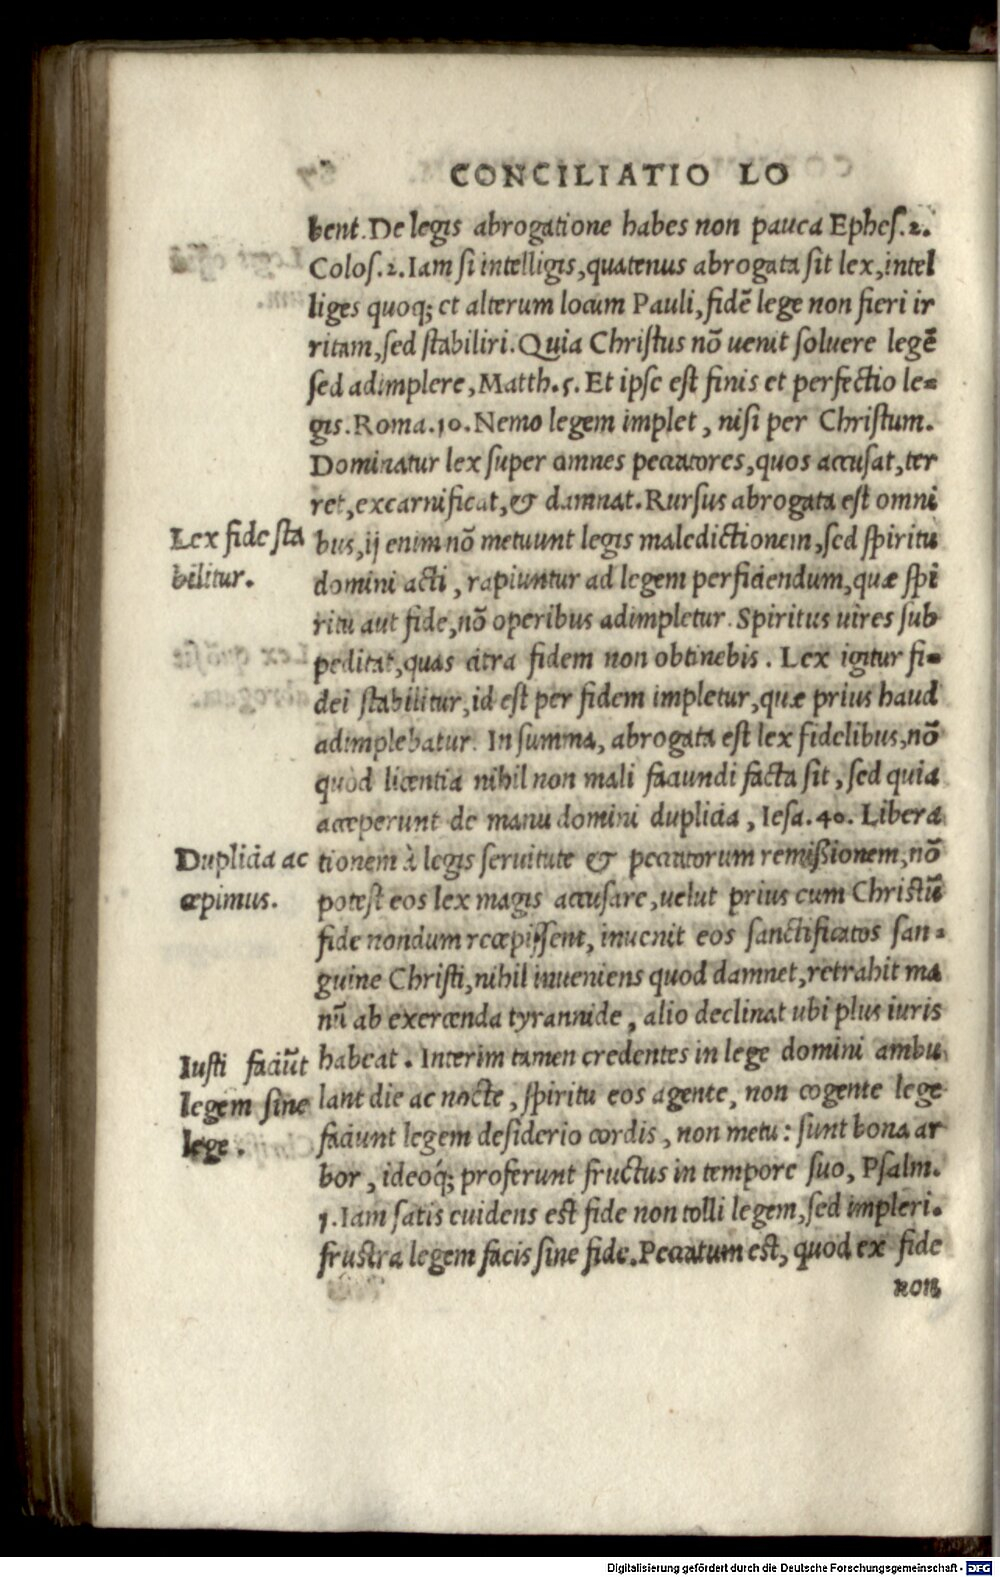 CONCILIATIO LO
bent. De legis abrogatione habes non pauca Ephes. 2.
Colos. 2. Iam si intelligis, quatenus abrogata sit lex, intel
liges quoq; et alterum locum Pauli, fidē lege non fieri ir
ritam, sed stabiliri. Quia Christus nō uenit soluere legē
sed adimplere, Matth. 5. Et ipse est finis et perfectio le=
gis. Roma. 10. Nemo legem implet, nisi per Christum.
Dominatur lex super omnes peccatores, quos accusat, ter
ret, excarnificat, & damnat. Rursus abrogata est omni
Lex fide sta
bilitur.
bus, ij enim nō metuunt legis maledictionem, sed spiritu
domini acti, rapiuntur ad legem perficiendum, quæ spi
ritu aut fide, nō operibus adimpletur. Spiritus uires sub
peditat, quas citra fidem non obtinebis. Lex igitur fi=
dei stabilitur, id est per fidem impletur, quæ prius haud
adimplebatur. In summa, abrogata est lex fidelibus, nō
quod licentia nihil non mali faciundi facta sit, sed quia
acceperunt de manu domini duplicia, Iesa. 40. Libera
Duplicia ac
cepimus.
tionem à legis seruitute & peccatorum remißionem, nō
potest eos lex magis accusare, uelut prius cum Christū
fide nondum recepissent, inuenit eos sanctificatos san=
guine Christi, nihil inueniens quod damnet, retrahit ma
nū ab exercenda tyrannide, alio declinat ubi plus iuris
Iusti faciūt
legem sine
lege.
habeat. Interim tamen credentes in lege domini ambu
lant die ac nocte, spiritu eos agente, non cogente lege
faciunt legem desiderio cordis, non metu: sunt bona ar
bor, ideóq; proferunt fructus in tempore suo, Psalm.
1. Iam satis euidens est fide non tolli legem, sed impleri.
frustra legem facis sine fide. Peccatum est, quod ex fide
non
Digitalisierung gefördert durch die Deutsche Forschungsgemeinschaft - DFG